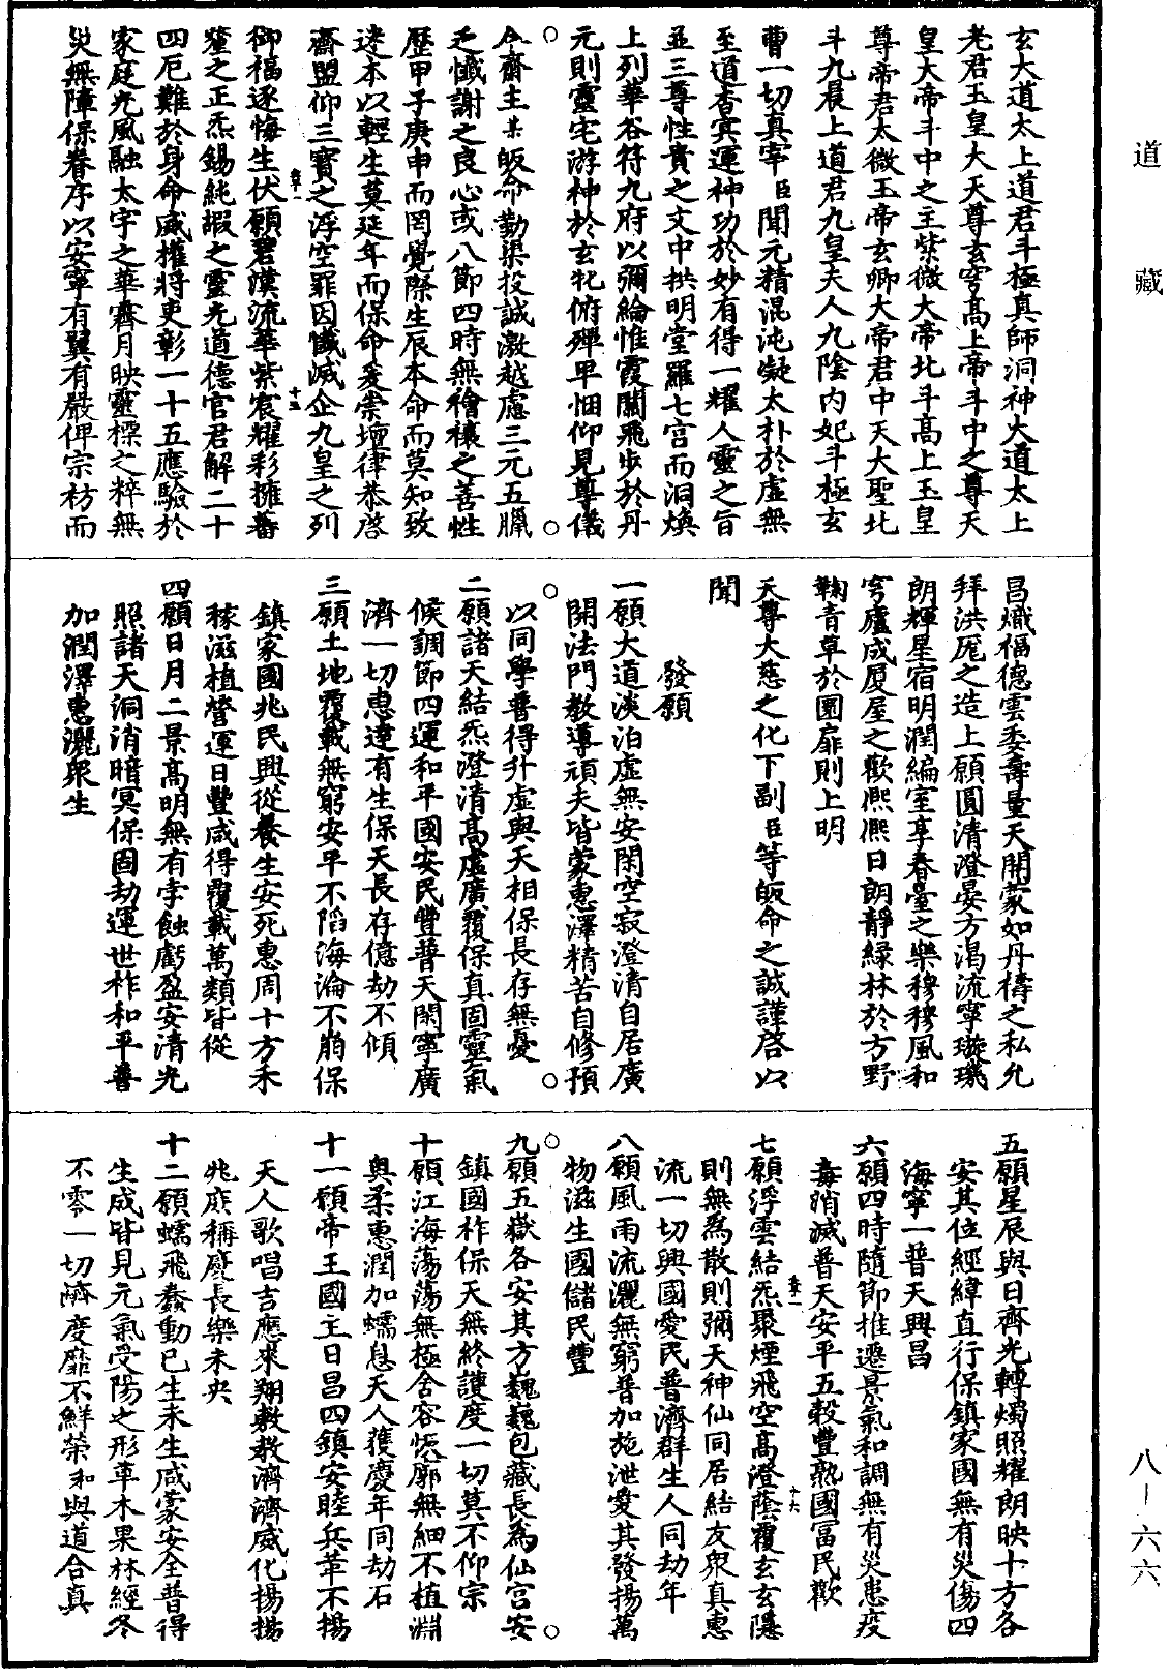 道藏
玄大道太上道君斗極真師洞神大道太上
老君玉皇大天尊玄穹高上帝斗中之尊天
皇大帝斗中之主紫微大帝北斗高上玉皇
尊帝君太微玉帝玄卿大帝君中天大聖北
斗九晨上道君九皇夫人九陰内妃斗極玄
曹一切真宰臣聞元精混沌凝太朴於虛無
至道杳冥運神功於妙有得一耀人靈之旨
並三尊性貴之文中拱明堂羅七宫而洞煥
上列華谷符九府以彌綸惟霞關飛步於丹
元則靈宅游神於玄牝俯殫卑悃仰見尊儀
今齋主某皈命勤渠投誠激越慮三元五臘
乏懺謝之良心或八節四時無禬禳之善性
歷甲子庚申而罔覺際生辰本命而莫知致
逯本以輕生莫延年而保命爰崇壇律恭啓
齋盟仰三寶之浮空罪因懺滅企九皇之列
御福逐悔生伏願碧漢流華紫宸耀彩擁蕃
釐之正炁錫純嘏之靈光道德官君解二十
四厄難於身命威權將吏彰一十五應驗於
家庭光風融太宇之華霽月映靈標之粹無
災無障保眷序以安寧有翼有嚴俾宗枋而
昌熾福德雲委壽量天開蒙如丹禱之私允
拜洪厖之造上願圓清澄晏方渴流寧璇璣
朗輝星宿明潤編室享春臺之樂穆穆風和
穹廬成厦屋之歡熙熙日朗靜緑林於方野
鞠青草於圜扉則上明
天尊大慈之化下副臣等皈命之誠謹啓以
聞
發願
一願大道淡泊虛無安閑空寂澄清自居廣
開法門教導頑夫皆蒙惠澤精苦自修預
以同學普得升虛與天相保長存無憂
二願諸天結炁澄清高虛廣覆保真固靈氣
候調節四運和平國安民豐普天閑寧廣
濟一切惠逮有生保天長存億劫不傾
三願土地覆載無窮安平不陷海淪不崩保
鎮家國兆民興從養生安死惠周十方禾
稼滋植營運日豐咸得覆載萬類皆從
四願日月二景高明無有孛蝕虧盈安清光
照諸天洞消暗冥保固劫運世祚和平普
加潤澤惠灑衆生
五願星辰與日齊光轉燭照耀朗映十方各
安其位經緯直行保鎮家國無有災傷四
海寧一普天興昌
六願四時隨節推遷景氣和調無有災患疫
毒消滅普天安平五穀豐熟國富民歡
七願浮雲結炁聚煙飛空高澄蔭覆玄玄隱
則無為散則彌天神仙同居結友衆真惠
流一切興國愛民普濟群生人同劫年
八願風雨流灑無窮普加施泄愛其發揚萬
物滋生國儲民豐
九願五嶽各安其方巍巍包藏長為仙宫安
鎮國祚保天無終護度一切莫不仰宗
十願江海蕩蕩無極含容恢廓無細不植淵
奥柔惠潤加蠕息天人獲慶年同劫石
十一願帝王國主日昌四鎮安睦兵革不揚
天人歌唱吉應來翔敷教濟濟威化揚揚
兆庶稱慶長樂未央
十二願蠕飛蠢動已生未生咸蒙安全普得
生成皆見元氣受陽之形草木果林經冬
不零一切濟度靡不鮮榮和與道合真
八—六六